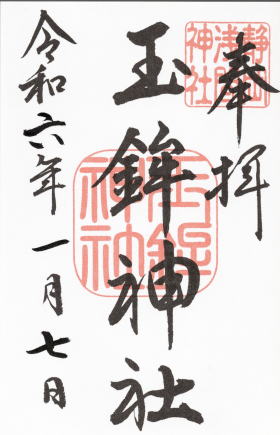 奉拝
静岡
浅間
神社
玉鉾神社
玉鉾
神社
令和六年一月七日